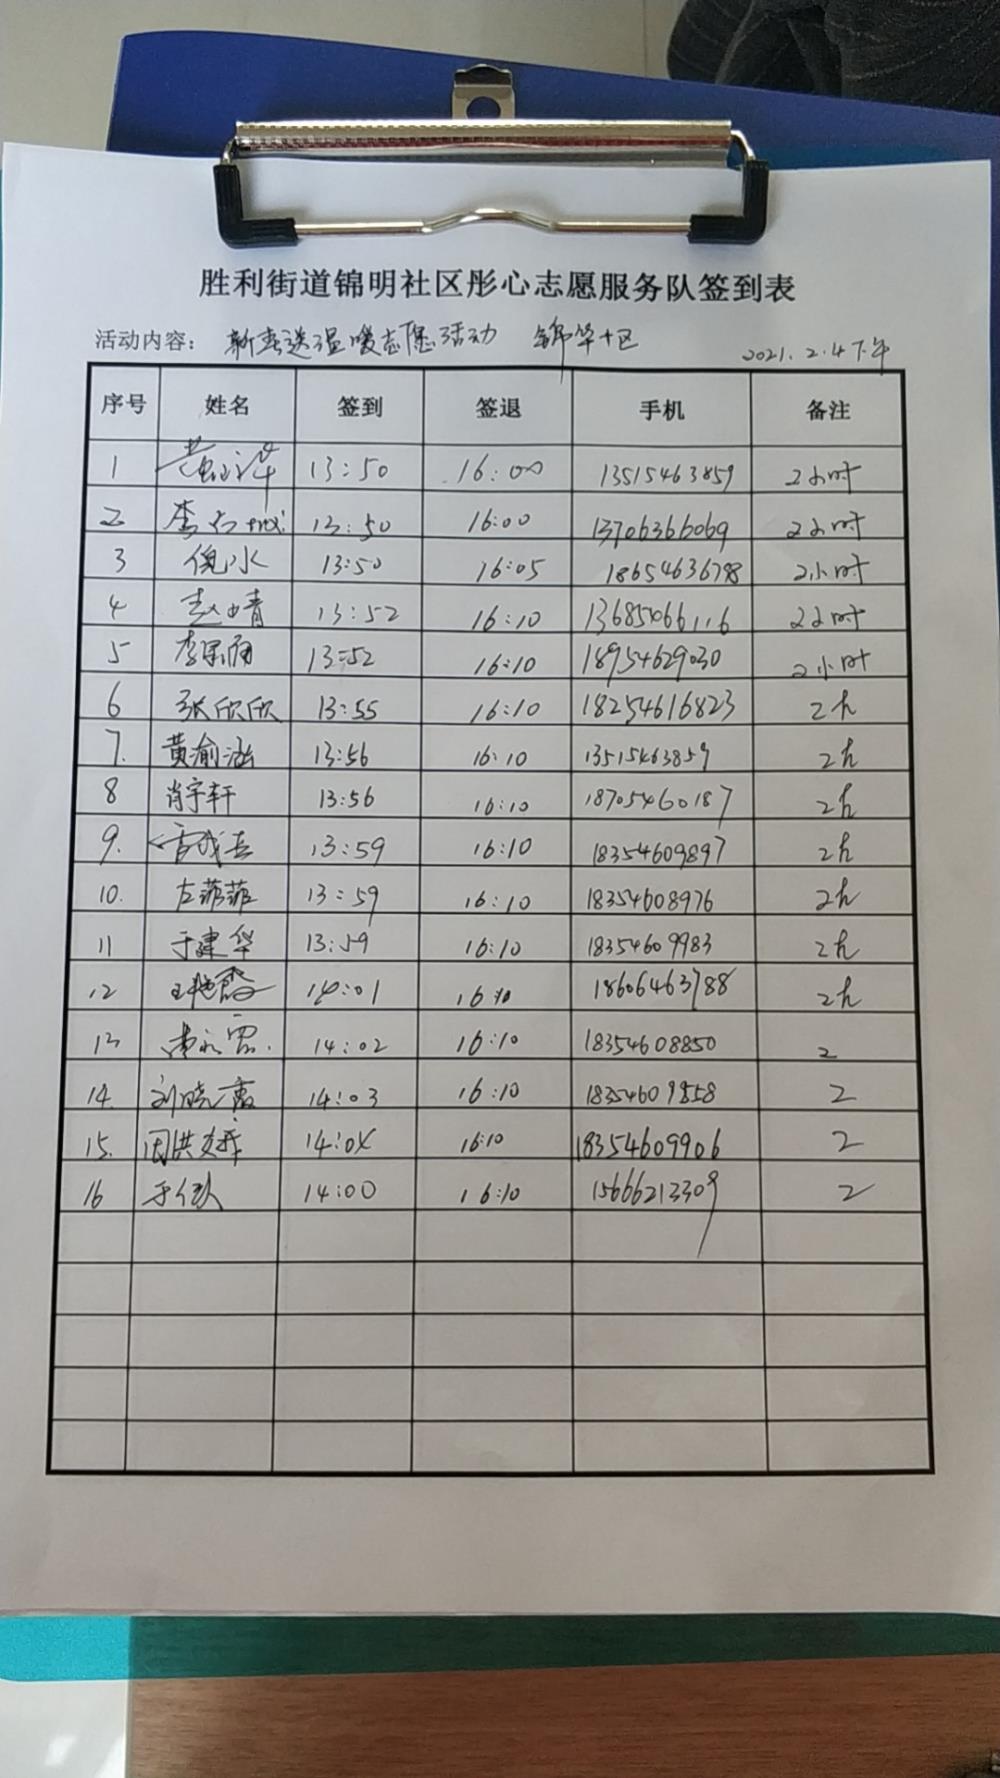 胜利街道锦明社区彤心志愿服务队签到表
活动内容： 新春送温暖志愿活动 锦华十区 2021.2.4下午
序号 姓名 签到 签退 手机 备注
1 13:50 16:00 13515463859 2小时
2 13:50 16:00 13706366069 2小时
3 倪水 13:50 16:05 18654636798 2小时
4 赵晴 13:52 16:10 13685066116 2小时
5 13:52 16:10 18954629030 2小时
6 张欣欣 13:55 16:10 18254616823 2h
7. 黄渝涵 13:56 16:10 13515463859 2h
8 肖宇轩 13:56 16:10 18705460187 2h
9. 13:59 16:10 18354609897 2h
10. 左菲菲 13:59 16:10 18354608976 2h
11 于建华 13:59 16:10 18354609983 2h
12 王艳香 14:01 16:10 18606463788 2h
13 14:02 16:10 18354608850 2
14. 刘晓 14:03 16:10 18354609858 2
15. 14:04 16:10 18354609906 2
16 14:00 16:10 15666213309 2